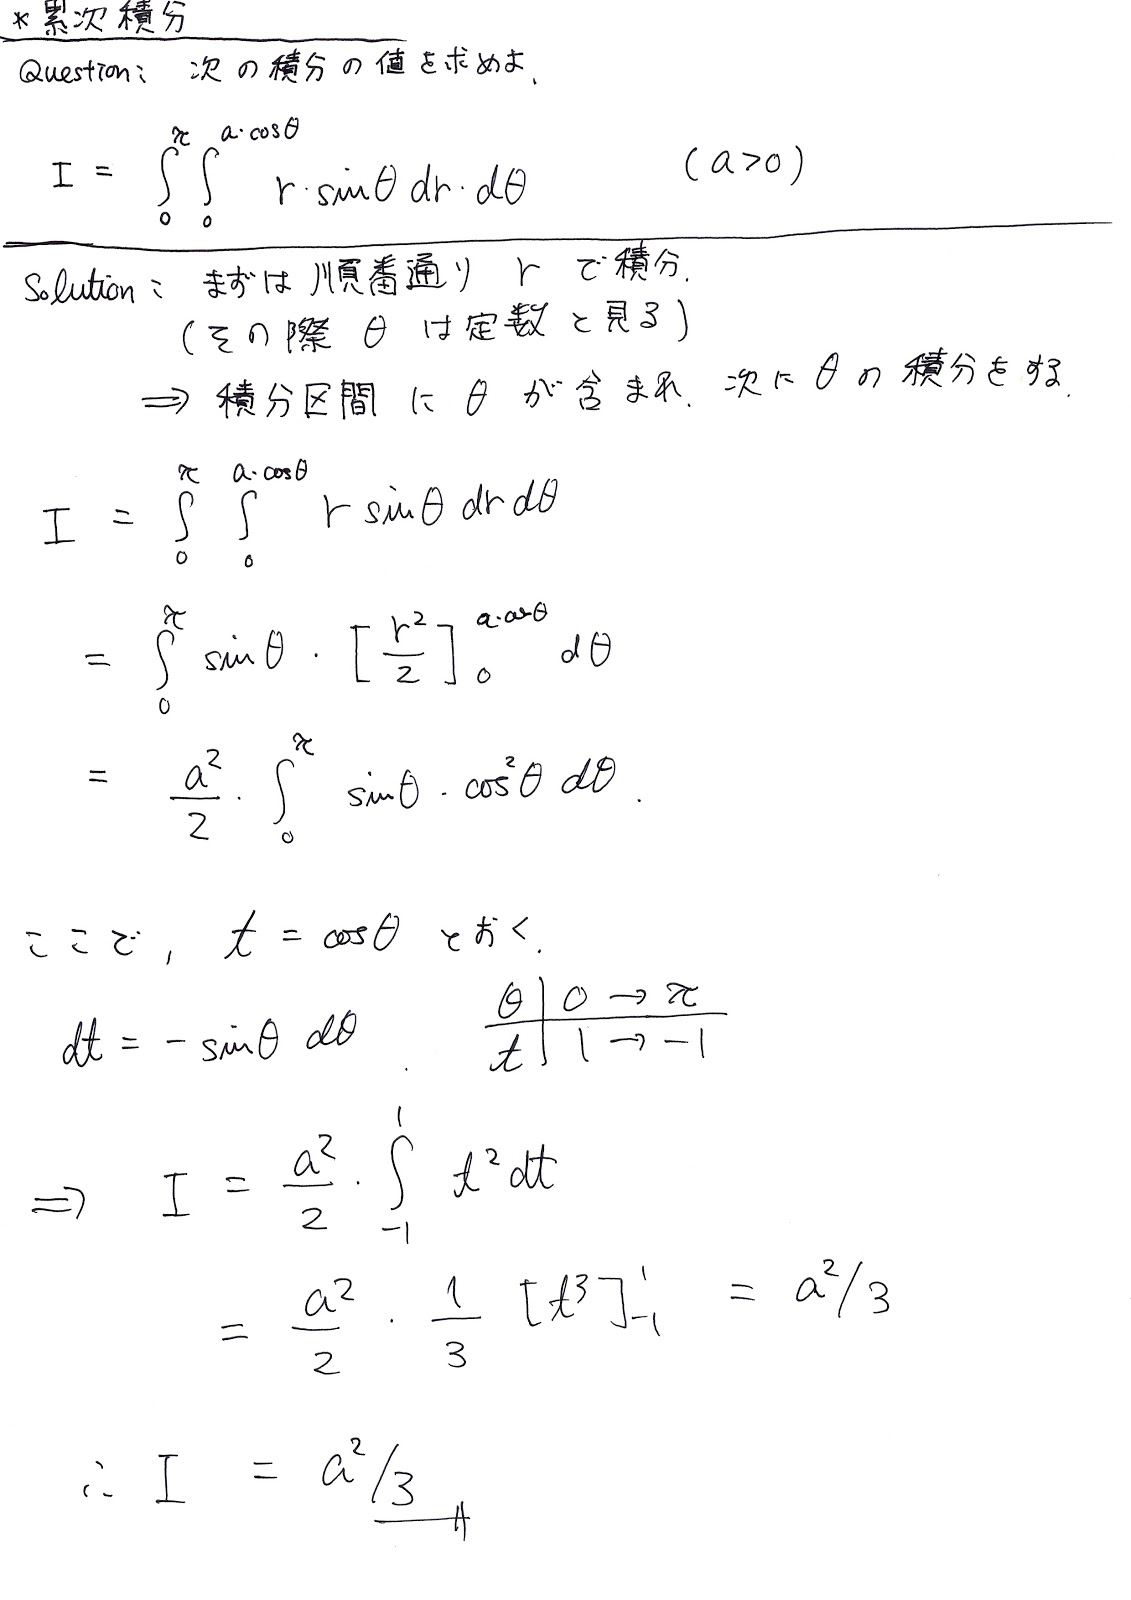 *累次積分
Question: 次の積分の値を求めよ.
I = ∫_0^π ∫_0^{a·cosθ} r·sinθ dr·dθ (a>0)
Solution: まずは順番通り r で積分.
(その際 θ は定数と見る)
⇒ 積分区間に θ が含まれ. 次に θ の積分をする.
I = ∫_0^π ∫_0^{a·cosθ} r sinθ dr dθ
= ∫_0^π sinθ · [r²/2]_0^{a·cosθ} dθ
= a²/2 · ∫_0^π sinθ · cos²θ dθ.
ここで, t = cosθ とおく.
dt = - sinθ dθ. θ | 0 → π
t | 1 → -1
⇒ I = a²/2 · ∫_{-1}^1 t² dt
= a²/2 · 1/3 [t³]_{-1}^1 = a²/3
∴ I = a²/3